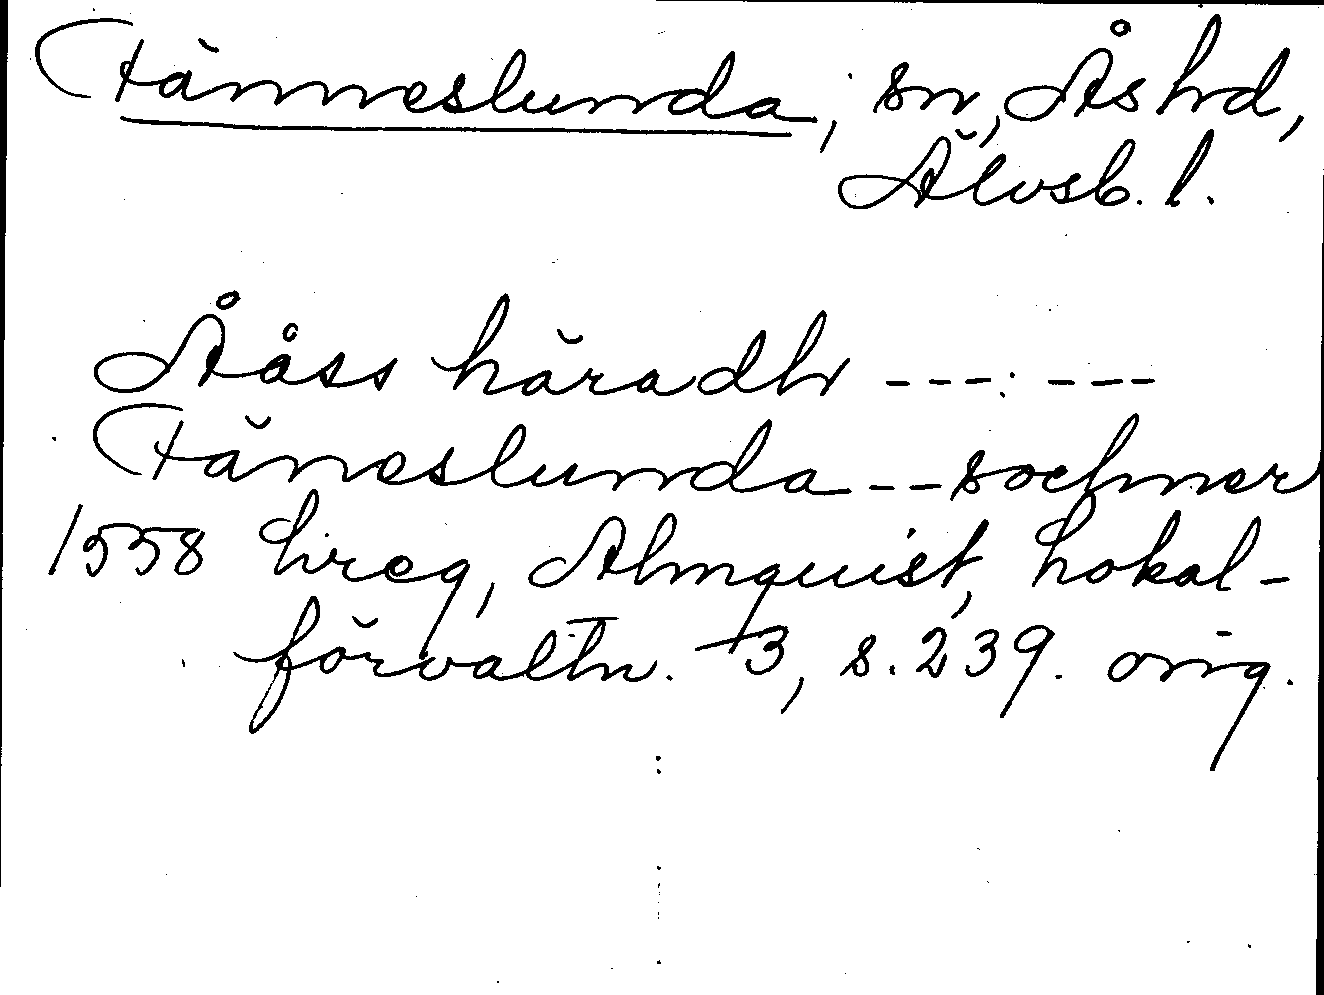 Fänneslunda, sn, Ås hd,
Älvsb. l.
Ååss häradh --- ---
Fäneslunda -- sochner
1558 hreg, Almquist, Lokal-
förvaltn. 3, s. 239. orig.